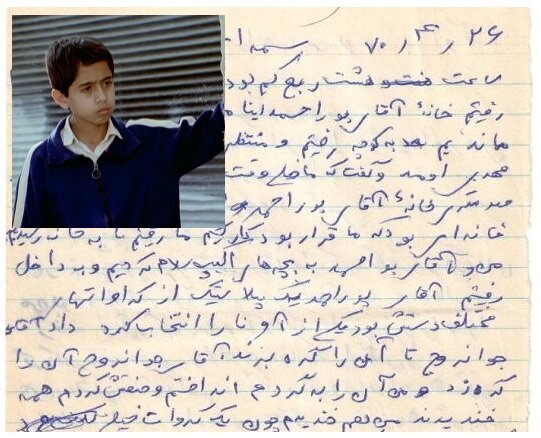 ۲۶ ر ۴ ر ۷۰ بسمه ا
ساعت هشت ربع کم بود
رفتیم خانهٔ آقای پور احمد اینا
ماندیم به کوچه رفتیم و منتظر
مهدی اومد و گفت که ما خیلی وقت
خانهٔ آقای پور احمد
خانه ای بود که ما قرار بود کار کنیم ما رفتیم تا به خانه رسیدیم
من و آقای پور احمد به بچه های اکیپ سلام کردیم و به داخل
رفتیم آقای پور احمد یک پلاستیک از کراواتهای
مختلف دستش بود یکی از آنها را انتخاب کرد داد آقای
جوانروح تا آن را گره بزند آقای جوانروح آن را
گره زد و من آن را به گردنم انداختم و سفتش کردم همه
خندیدند من هم خندیدم چون یک کروات خیلی